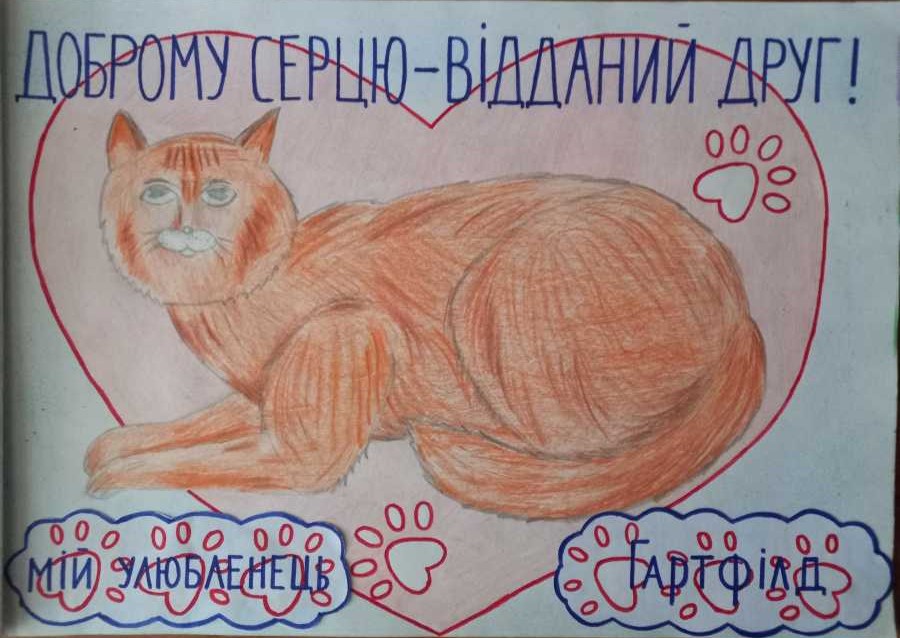 ДОБРОМУ СЕРЦЮ-ВІДДАНИЙ ДРУГ!
МІЙ УЛЮБЛЕНЕЦЬ
ГАРТФІЛД